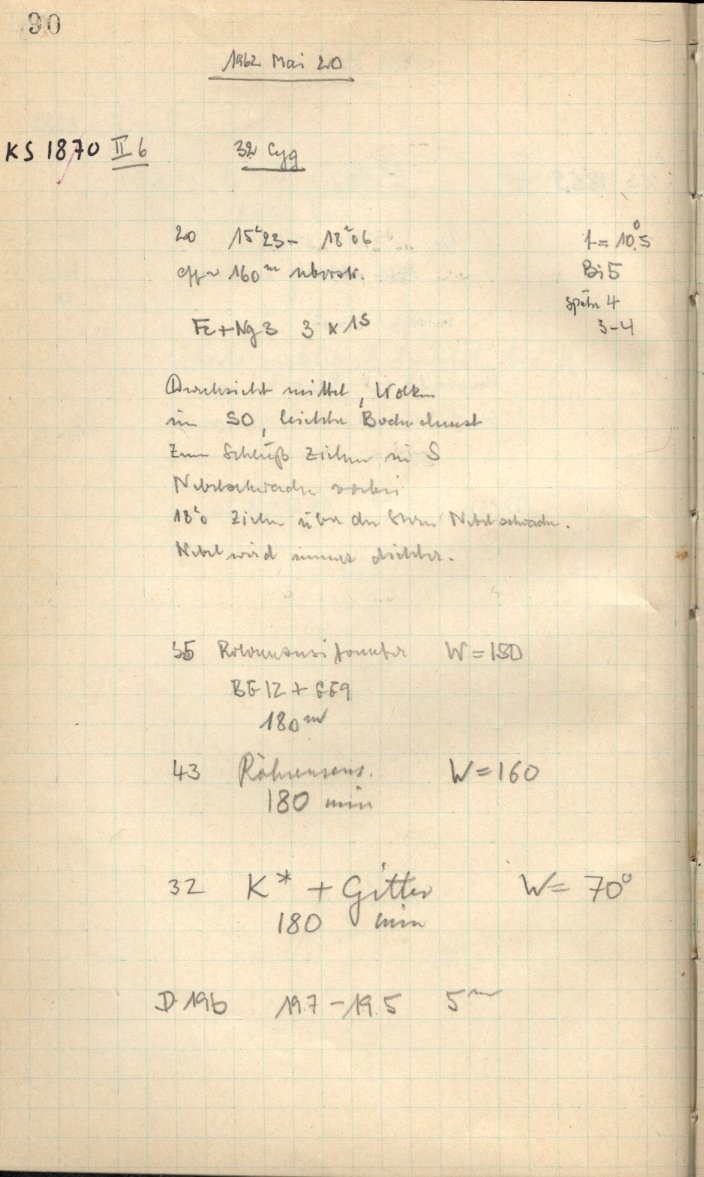 90
1962 Mai 20
KS 1870 II 6 32 Cyg
20 15ʰ23 – 18ʰ06 t = 10°.5
eff ~ 160ᵐ überstr. Bi 5
später 4
Fe + Ng 3 3 x 1ˢ 3-4
Durchsicht mittel, Wolken
in SO, leichter Bodendunst
Zum Schluß ziehen in S
Nebelschwaden vorbei
18ʰ0 ziehen über den Stern Nebelschwaden.
Nebel wird immer dichter.
35 W = 150
BG12 + GG9
180ᵐ
43 Röhrensens. W = 160
180 min
32 K* + Gitter W = 70°
180 min
D 196 19.7 – 19.5 5ᵐ